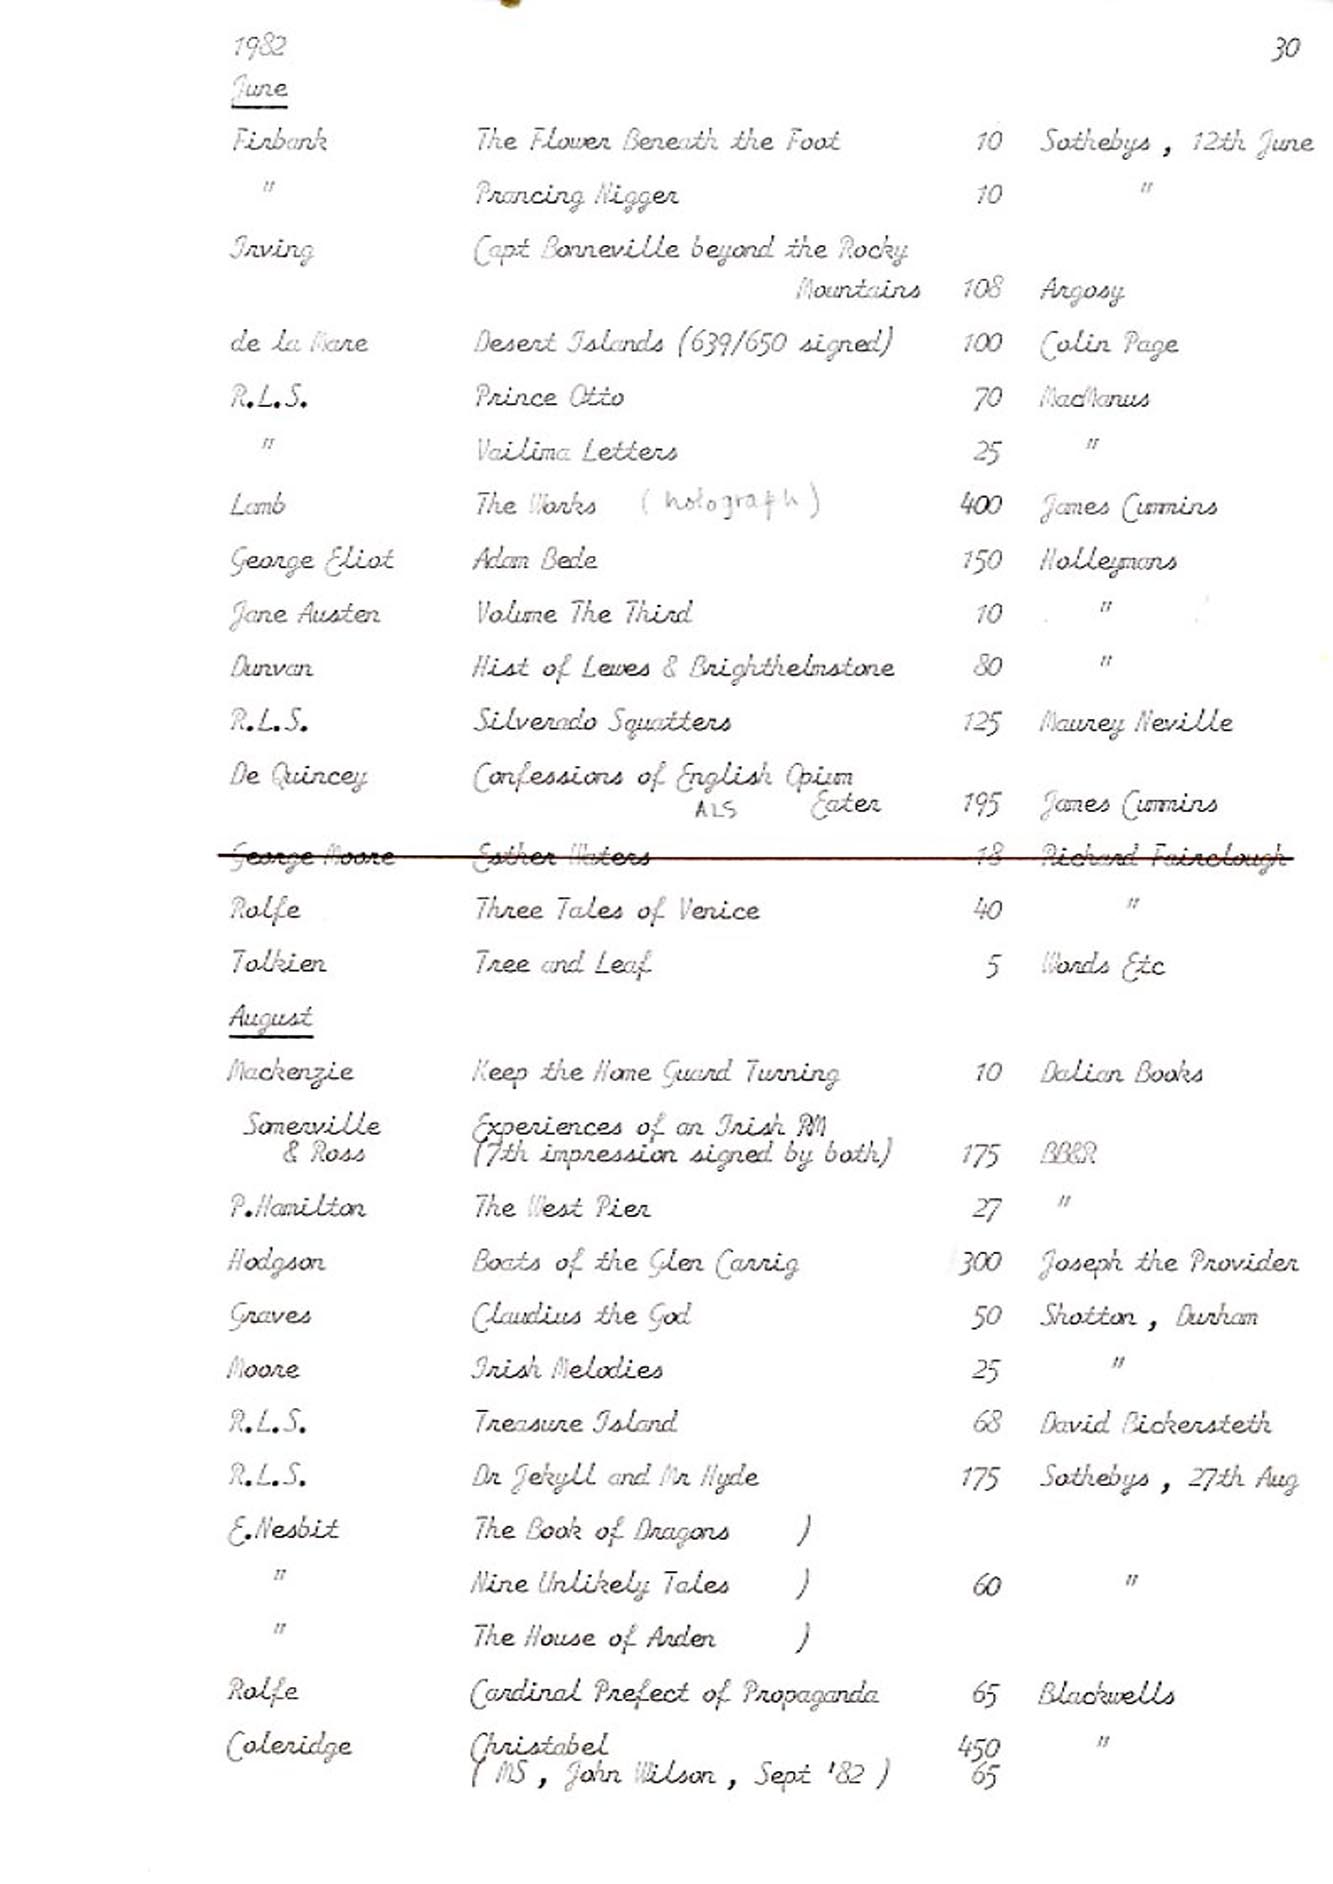 1982 30
June
Firbank The Flower Beneath the Foot 10 Sothebys , 12th June
" Prancing Nigger 10 "
Irving Capt Bonneville beyond the Rocky
Mountains 108 Argosy
de la Mare Desert Islands (639/650 signed) 100 Colin Page
R.L.S. Prince Otto 70 MacManus
" Vailima Letters 25 "
Lamb The Works (holograph) 400 James Cummins
George Eliot Adam Bede 150 Holleymans
Jane Austen Volume The Third 10 "
Dunvan Hist of Lewes & Brighthelmstone 80 "
R.L.S. Silverado Squatters 125 Maurey Neville
De Quincey Confessions of English Opium
ALS Eater 195 James Cummins
George Moore Esther Waters 18 Richard Fairclough
Rolfe Three Tales of Venice 40 "
Tolkien Tree and Leaf 5 Words Etc
August
Mackenzie Keep the Home Guard Turning 10 Dalian Books
Somerville Experiences of an Irish RM
& Ross (7th impression signed by both) 175 BB&R
P.Hamilton The West Pier 27 "
Hodgson Boats of the Glen Carrig 300 Joseph the Provider
Graves Claudius the God 50 Shotton , Durham
Moore Irish Melodies 25 "
R.L.S. Treasure Island 68 David Bickersteth
R.L.S. Dr Jekyll and Mr Hyde 175 Sothebys , 27th Aug
E.Nesbit The Book of Dragons )
" Nine Unlikely Tales ) 60 "
" The House of Arden )
Rolfe Cardinal Prefect of Propaganda 65 Blackwells
Coleridge Christabel 450 "
( MS , John Wilson , Sept '82 ) 65